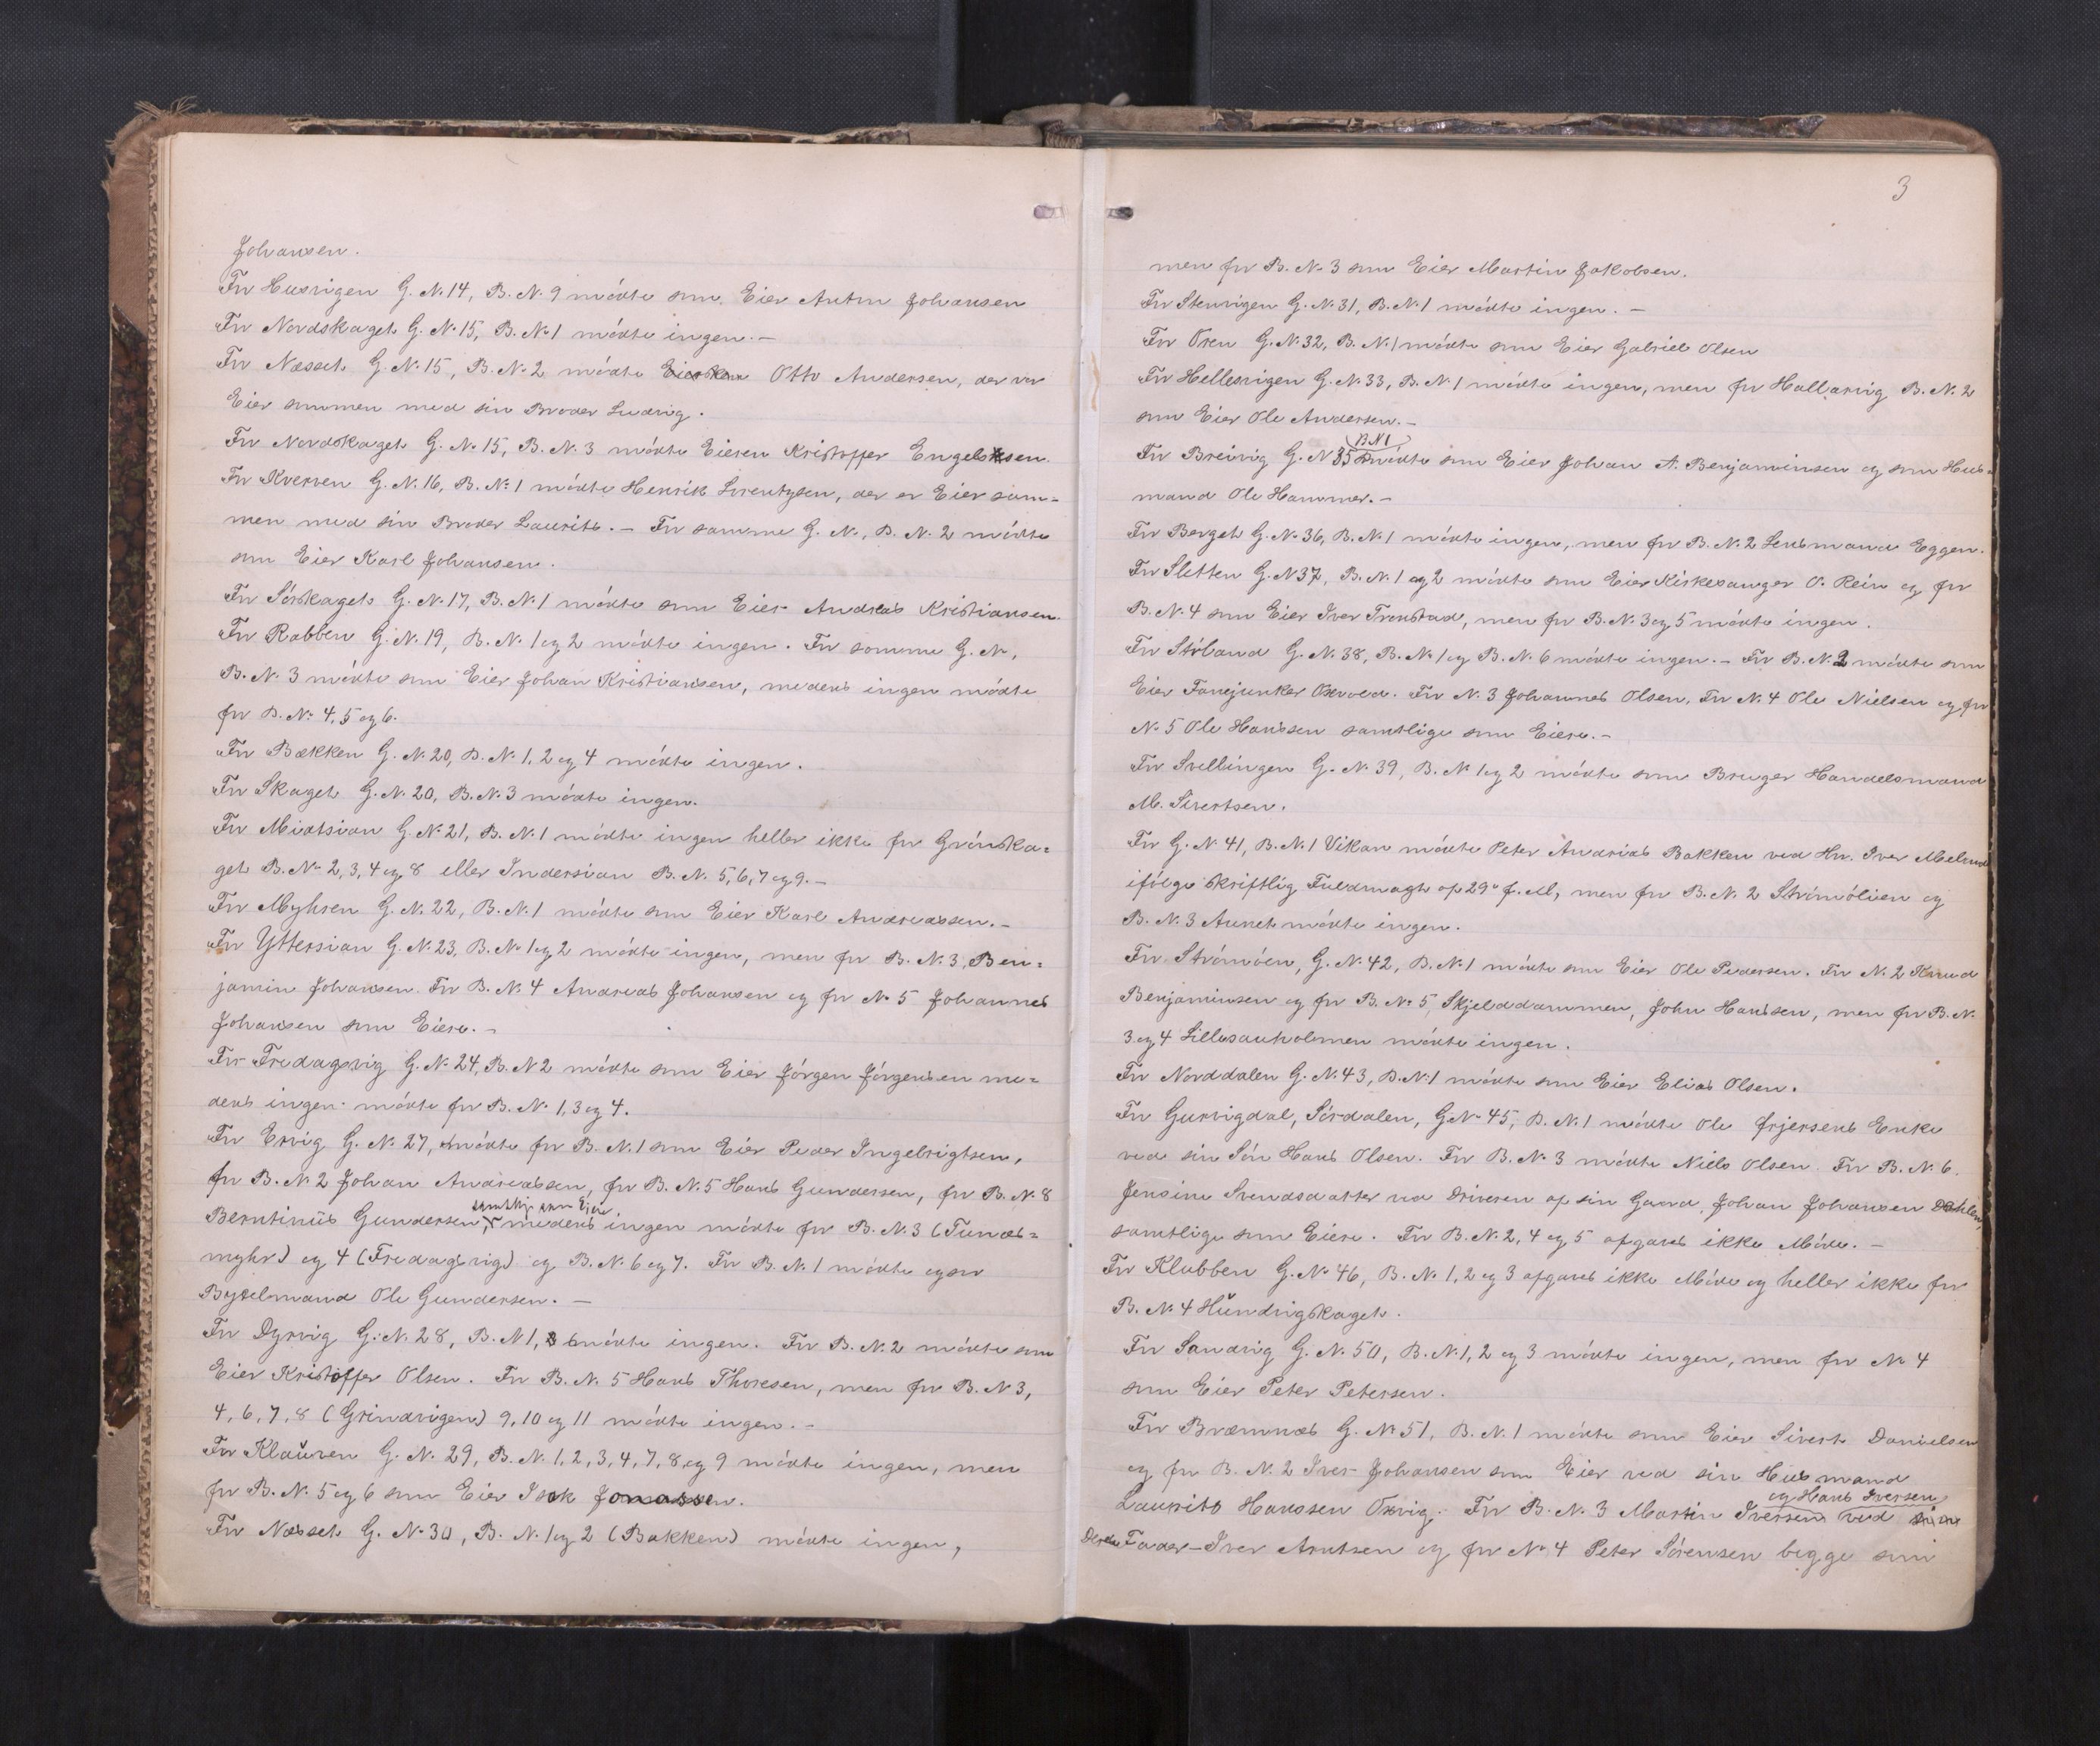 Johansen.
For Husvigen G. N. 14, B. N. 9 mödte som Eier Anton Johansen
For Nordskaget G. N. 15, B. N. 1 mödte ingen. -
For Næsset G. N. 15, B. N. 2 mödte Otto Andersen, der er
Eier sammen med sin Broder Ludvig.
For Nordskaget G. N. 15, B. N. 3 mödte Eieren Kristoffer Engelsen.
For Kverven G. N. 16, B. N. 1 mödte Henrik Lorentzen, der er Eier sam=
men med sin Broder Laurits. - For samme G. N., B. N. 2 mödte
som Eier Karl Johansen.
For Sörskaget G. N. 17, B. N. 1 mödte som Eier Andreas Kristiansen.
For Rabben G. N. 19, B. N. 1 og 2 mödte ingen. For samme G. N.,
B. N. 3 mödte som Eier Johan Kristiansen, medens ingen mödte
for B. N. 4, 5 og 6.
For Bækken G. N. 20, B. N. 1, 2 og 4 mödte ingen.
For Skaget G. N. 20, B. N. 3 mödte ingen.
For Midtsian G. N. 21, B. N. 1 mödte ingen heller ikke for Grönska=
get B. N. 2, 3, 4 og 8 eller Indersian B. N. 5, 6, 7 og 9. -
For Myhren G. N. 22, B. N. 1 mödte som Eier Karl Andreassen. -
For Yttersian G. N. 23, B. N. 1 og 2 mödte ingen, men for B. N. 3, Ben=
jamin Johansen. For B. N. 4 Andreas Johansen og for N. 5 Johannes
Johansen som Eiere. -
For Fredagsvig G. N. 24, B. N 2 mödte som Eier Jörgen Jörgensen me=
dens ingen mödte for B. N. 1, 3 og 4.
For Ervig G. N. 27, mödte for B. N. 1 som Eier Peder Ingebrigtsen,
for B. N. 2 Johan Andreassen, for B. N. 5 Hans Gundersen, for B. N. 8
samtlige som Eiere,
Berntinus Gundersen, medens ingen mödte for B. N. 3 (Tunæs=
myhr) og 4 (Fredagsvig) og B. N. 6 og 7. For B. N. 1 mödte ogsaa
Bygselmand Ole Gundersen. -
For Dyrvig G. N. 28, B. N 1, mödte ingen. For B. N. 2 mödte som
Eier Kristoffer Olsen. For B. N. 5 Hans Thoresen, men for B. N 3,
4, 6, 7, 8 (Grindvigen) 9, 10 og 11 mödte ingen. -
For Klauren G. N. 29, B. N. 1, 2, 3, 4, 7, 8 og 9 mödte ingen, men
for B. N. 5 og 6 som Eier Isak Jonassen.
For Næsset G. N. 30, B. N. 1 og 2 (Bakken) mödte ingen,
3
men for B. N. 3 som Eier Martin Jakobsen.
For Stenvigen G. N. 31, B. N. 1 mödte ingen. -
For Osen G. N. 32, B. N. 1 mödte som Eier Gabriel Olsen
For Hellesvigen G. N. 33, B. N. 1 mödte ingen, men for Hallarvig B. N. 2
som Eier Ole Andersen. -
B N 1
For Breivig G. N 35 mödte som Eier Johan A. Benjaminsen og som Hus=
mand Ole Hammer. -
For Berget G. N. 36, B. N. 1 mödte ingen, men for B. N. 2 Lensmand Eggen.
For Sletten G. N 37, B. N. 1 og 2 mödte som Eier Kirkesanger O. Rein og for
B. N. 4 som Eier Iver Tronstad, men for B. N. 3 og 5 mödte ingen.
For Störland G. N. 38, B. N. 1 og B. N. 6 mödte ingen. - For B. N. 2 mödte som
Eier Fanejunker Oxvold. For N. 3 Johannes Olsen, For N. 4 Ole Nielsen og for
N. 5 Ole Hanssen samtlige som Eiere. -
For Svellingen G. N. 39, B. N. 1 og 2 mödte som Bruger Handelsmand
M. Sivertsen.
For G. N. 41, B. N. 1 Vikan mödte Peter Andreas Bakken ved Hr. Iver
ifölge skriftlig Fuldmagt af 29de f. M, men for B. N. 2 Strömölien og
B. N. 3 Aunet mödte ingen.
For Strömöen, G. N. 42, B. N. 1 mödte som Eier Ole Pedersen. For N. 2 Knud
Benjaminsen og for B. N. 5, Skjelddammen, John Hanssen, men for B. N.
3 og 4 Lillesauholmen mödte ingen.
For Norddalen G. N. 43, B. N. 1 mödte som Eier Elias Olsen.
For Gurvigdal, Sördalen, G N. 45, B. N. 1 mödte Ole Enke
ved sin Sön Hans Olsen. For B. N. 3 mödte Niels Olsen. For B. N. 6.
Jensine Svendsdatter ved Driveren af sin Gaard, Johan Johansen Dahlen,
samtlige som Eiere. For B. N. 2, 4 og 5 afgaves ikke Möde. -
For Klubben G. N. 46, B. N. 1, 2 og 3 afgaves ikke Möde og heller ikke for
B. N. 4 Hundvigskaget.
For Sandvig G. N. 50, B. N. 1, 2 og 3 mödte ingen, men for N. 4
som Eier Peter Petersen.
For Bræmnæs G. N. 51, B. N. 1 mödte som Eier Sivert Danielsen
og for B. N. 2 Iver Johansen som Eier ved sin Husmand
og Hans Iversen
Laurits Hanssen Oxvig. For B. N. 3 Martin Iversen ved
Deres Fader - Iver Arntsen og for N. 4 Peter Sörensen begge som